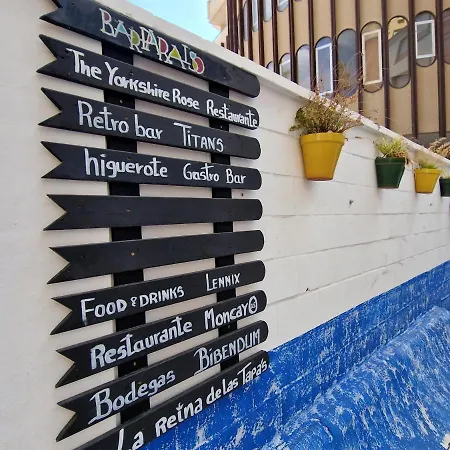 BARPARAISO
The Yorkshire Rose Restaurante
Retro bar TITANS
higuerote Gastro Bar
FOOD & DRINKS LENNIX
Restaurante MONCAYO
Bodegas BIBENDUM
La Reina de las Tapa's